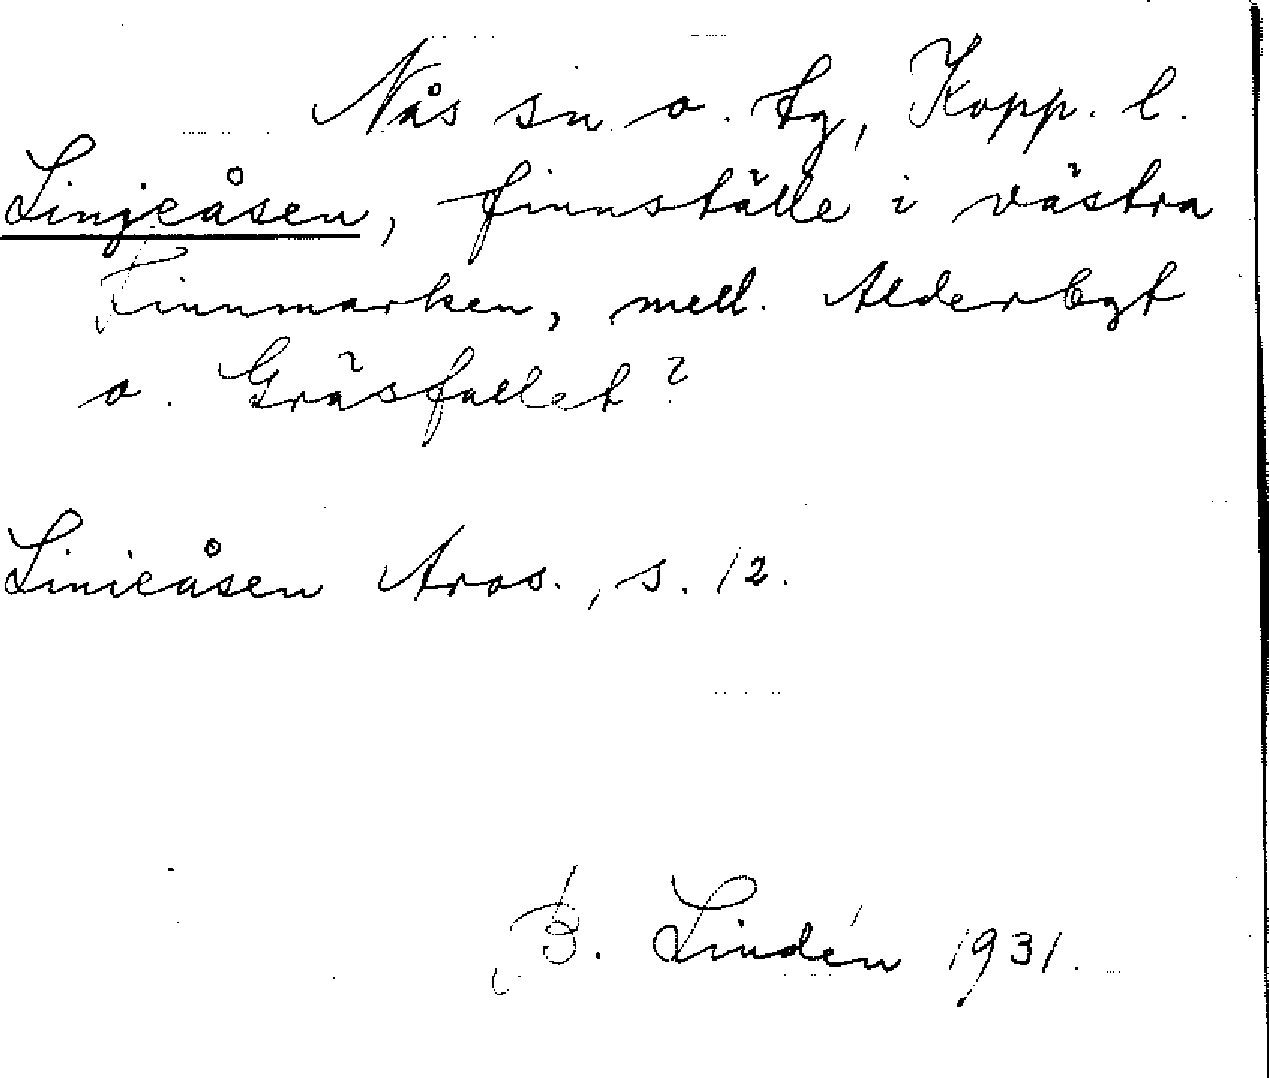 Nås sn o. tg, Kopp. l.
Linjeåsen, finnställe i västra
Finnmarken, mell. Alderbgt
o. Gräsfallet?
Linieåsen Aros., s. 12.
B. Lindén 1931.